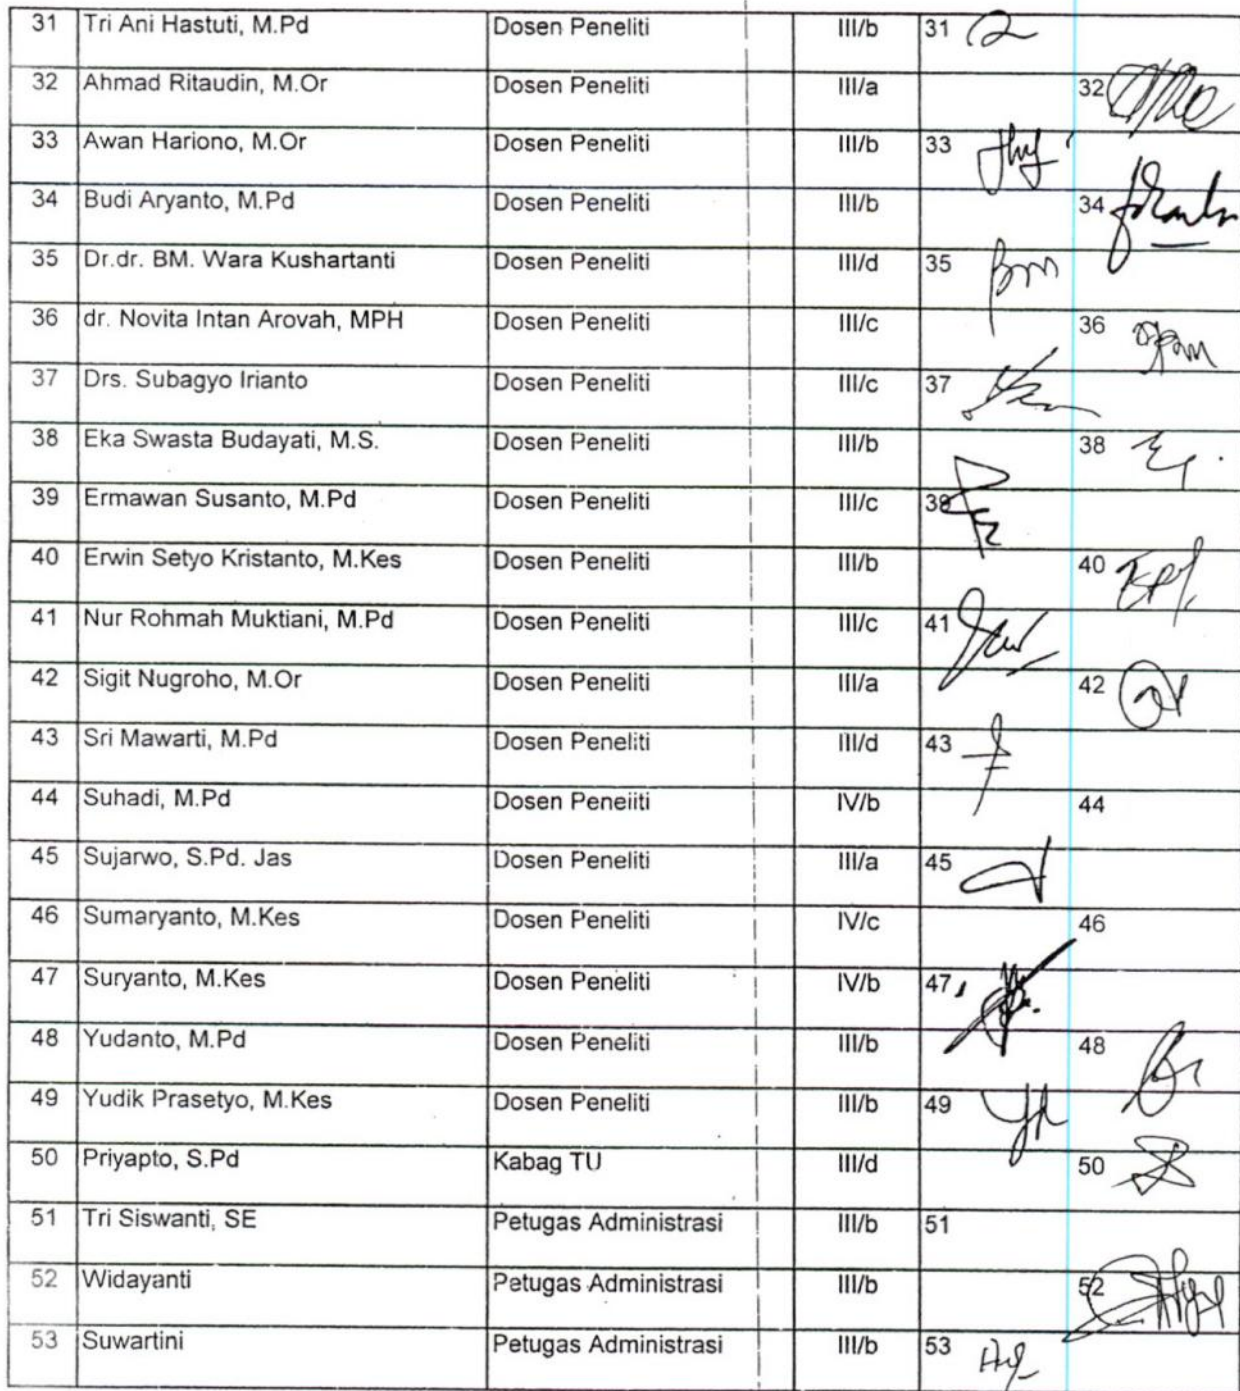 31 Tri Ani Hastuti, M.Pd Dosen Peneliti III/b 31
32 Ahmad Ritaudin, M.Or Dosen Peneliti III/a 32
33 Awan Hariono, M.Or Dosen Peneliti III/b 33
34 Budi Aryanto, M.Pd Dosen Peneliti III/b 34
35 Dr.dr. BM. Wara Kushartanti Dosen Peneliti III/d 35
36 dr. Novita Intan Arovah, MPH Dosen Peneliti III/c 36
37 Drs. Subagyo Irianto Dosen Peneliti III/c 37
38 Eka Swasta Budayati, M.S. Dosen Peneliti III/b 38
39 Ermawan Susanto, M.Pd Dosen Peneliti III/c 39
40 Erwin Setyo Kristanto, M.Kes Dosen Peneliti III/b 40
41 Nur Rohmah Muktiani, M.Pd Dosen Peneliti III/c 41
42 Sigit Nugroho, M.Or Dosen Peneliti III/a 42
43 Sri Mawarti, M.Pd Dosen Peneliti III/d 43
44 Suhadi, M.Pd Dosen Peneliti IV/b 44
45 Sujarwo, S.Pd. Jas Dosen Peneliti III/a 45
46 Sumaryanto, M.Kes Dosen Peneliti IV/c 46
47 Suryanto, M.Kes Dosen Peneliti IV/b 47
48 Yudanto, M.Pd Dosen Peneliti III/b 48
49 Yudik Prasetyo, M.Kes Dosen Peneliti III/b 49
50 Priyapto, S.Pd Kabag TU III/d 50
51 Tri Siswanti, SE Petugas Administrasi III/b 51
52 Widayanti Petugas Administrasi III/b 52
53 Suwartini Petugas Administrasi III/b 53